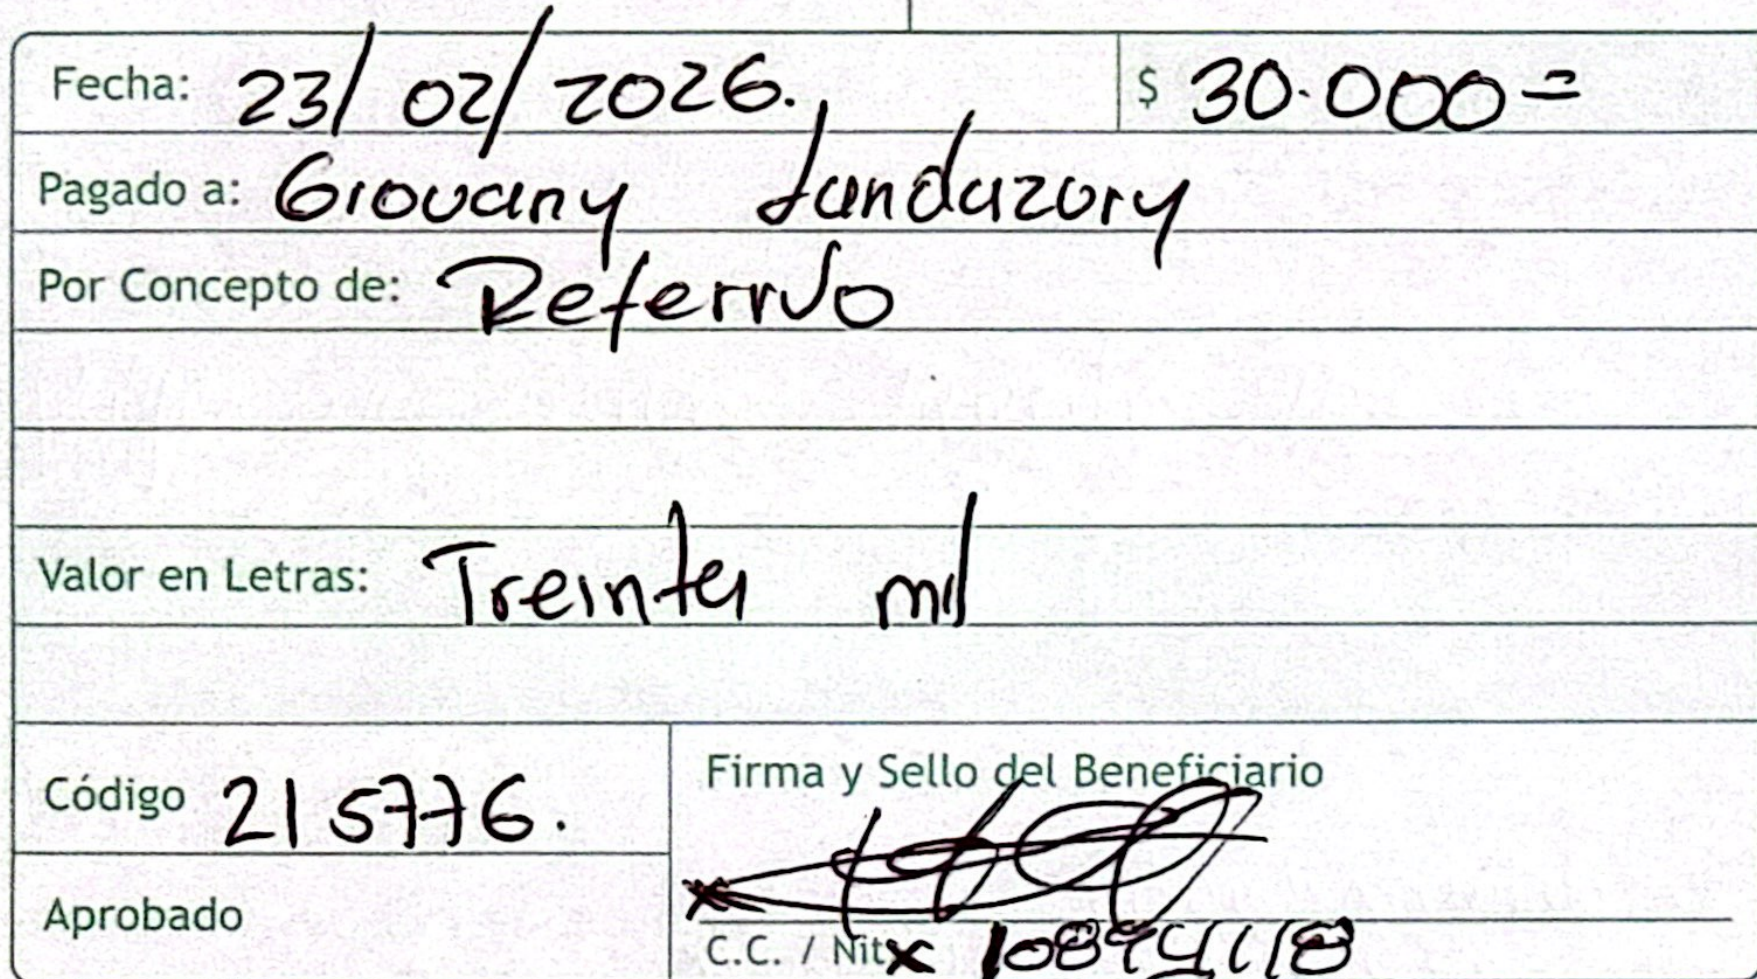 Fecha: 23/02/2026. $ 30.000=
Pagado a: Giovany Landazory
Por Concepto de: Referido
Valor en Letras: Treinta mil
Código 215776.
Firma y Sello del Beneficiario
Aprobado
C.C. / Nit x